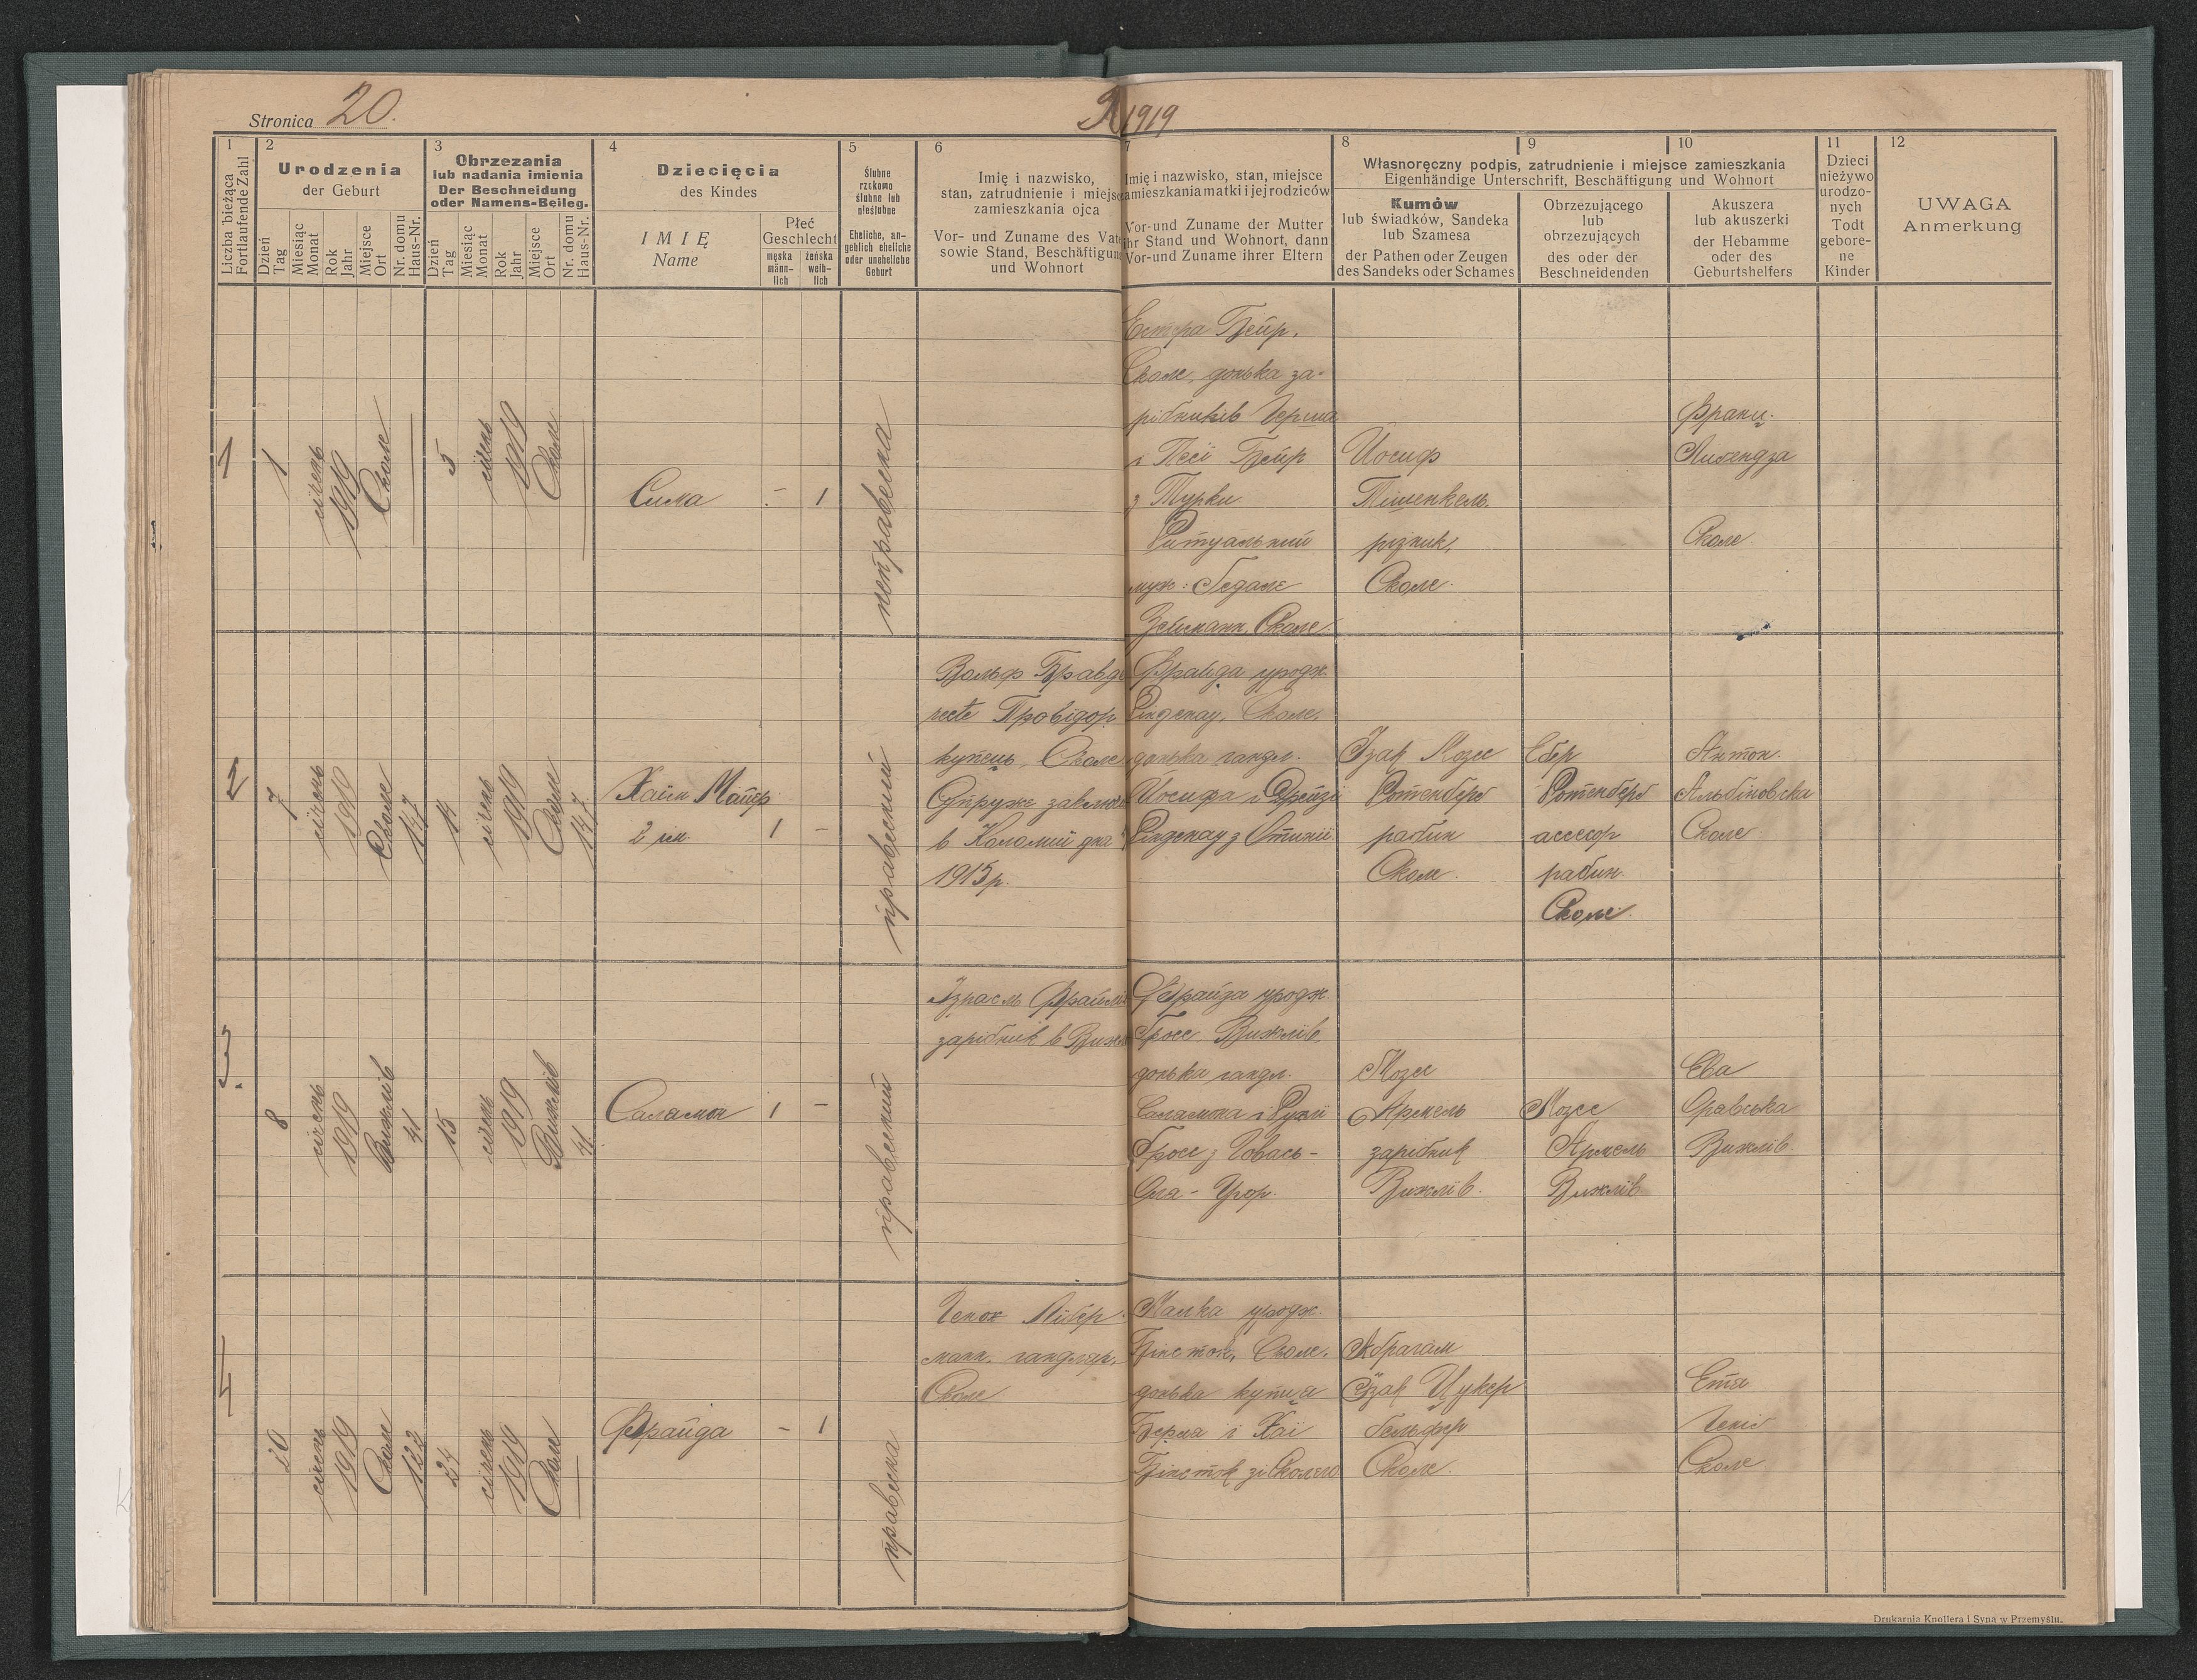 Stronica 20.
1919
1
2
3
4
5
6
7
8
9
10
11
12
Liczba bieżąca
Fortlaufende Zahl
Urodzenia
der Geburt
Dzień
Tag
Miesiąc
Monat
Rok
Jahr
Miejsce
Ort
Nr. domu
Haus-Nr.
Obrzezania
lub nadania imienia
Der Beschneidung
oder Namens-Beileg.
Dzień
Tag
Miesiąc
Monat
Rok
Jahr
Miejsce
Ort
Nr. domu
Haus-Nr.
Dziecięcia
des Kindes
IMIĘ
Name
Płeć
Geschlecht
męska
männ-
lich
żeńska
weib-
lich
Ślubne
rzekomo
ślubne lub
nieślubne
Eheliche, an-
geblich eheliche
oder uneheliche
Geburt
Imię i nazwisko,
stan, zatrudnienie i miejsc
zamieszkania ojca
Vor- und Zuname des Vate
sowie Stand, Beschäftigun
und Wohnort
Imię i nazwisko, stan, miejsce
zamieszkania matki i jej rodziców
Vor- und Zuname der Mutter
ihr Stand und Wohnort, dann
Vor- und Zuname ihrer Eltern
Własnoręczny podpis, zatrudnienie i miejsce zamieszkania
Eigenhändige Unterschrift, Beschäftigung und Wohnort
Kumów
lub świadków, Sandeka
lub Szamesa
der Pathen oder Zeugen
des Sandeks oder Schames
Obrzezującego
lub
obrzezujących
des oder der
Beschneidenden
Akuszera
lub akuszerki
der Hebamme
oder des
Geburtshelfers
Dzieci
nieżywo
urodzo-
nych
Todt
gebore-
ne
Kinder
UWAGA
Anmerkung
1
1
січень
1919
Сколе
5
січень
1919
Сколе
Сима
-
1
неправеска
Естера Бейр,
Сколе, донька за-
рібників Герша
і Песі Бейр
з Турки
Ритуальний
муж: Гедалє
Зелеманн, Сколе.
Йосиф
Тішенкель
різник,
Сколе.
Франц.
Сколе.
2
7
січень
1919
Сколе
147
14
січень
1919
Сколе
147
Хаїм Маєр
2 ім.
1
-
правеский
Вольф
recte Провідор
купець, Сколе
Супруже
в Коломиї дна
1915 р.
Фрайда уродж.
Лінденау, Сколе,
донька гандл.
Йосифа і Дрейзі
Лінденау з Отинії
Ізак Мозес
Ротенберг
рабин
Сколе.
Ебер
Ротенберг
ассесор
рабин.
Сколе.
Антон.
Альбіновска
Сколе
3.
8
січень
1919
Вижлів
41
15
січень
1919
Вижлів
41
Саламон
1
-
правеский
Ізраєль
зарібник в
Фрайда уродж.
Гросс Вижлів,
донька гандл.
Саламона і Рузі
Гросс з Ловась-
Оля - Угор.
Мозес
Армель
зарібник
Вижлів.
Мозес
Армель
Вижлів
Ева
Оравська
Вижлів.
4
20
січень
1919
Сколе
122
24
січень
1919
Сколе
Фрайда
-
1
правеска
Генох Лібер-
манн, гандляр,
Сколе
Малка уродж.
Бінсток, Сколе,
донька купця
Берла і Хаї
Бінсток зі Сколего
Абрагам
Ізак Цукер
бельфер
Сколе.
Етя
Сколе
Drukarnia Knollera i Syna w Przemyślu.